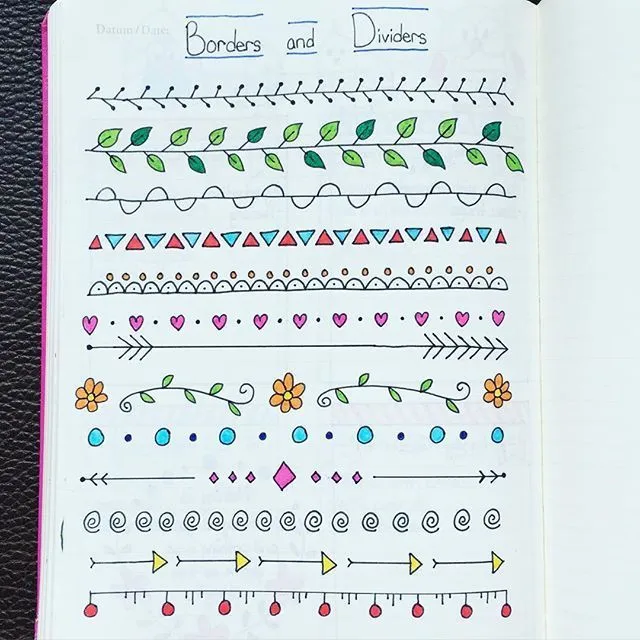 Datum/Date:
Borders and Dividers